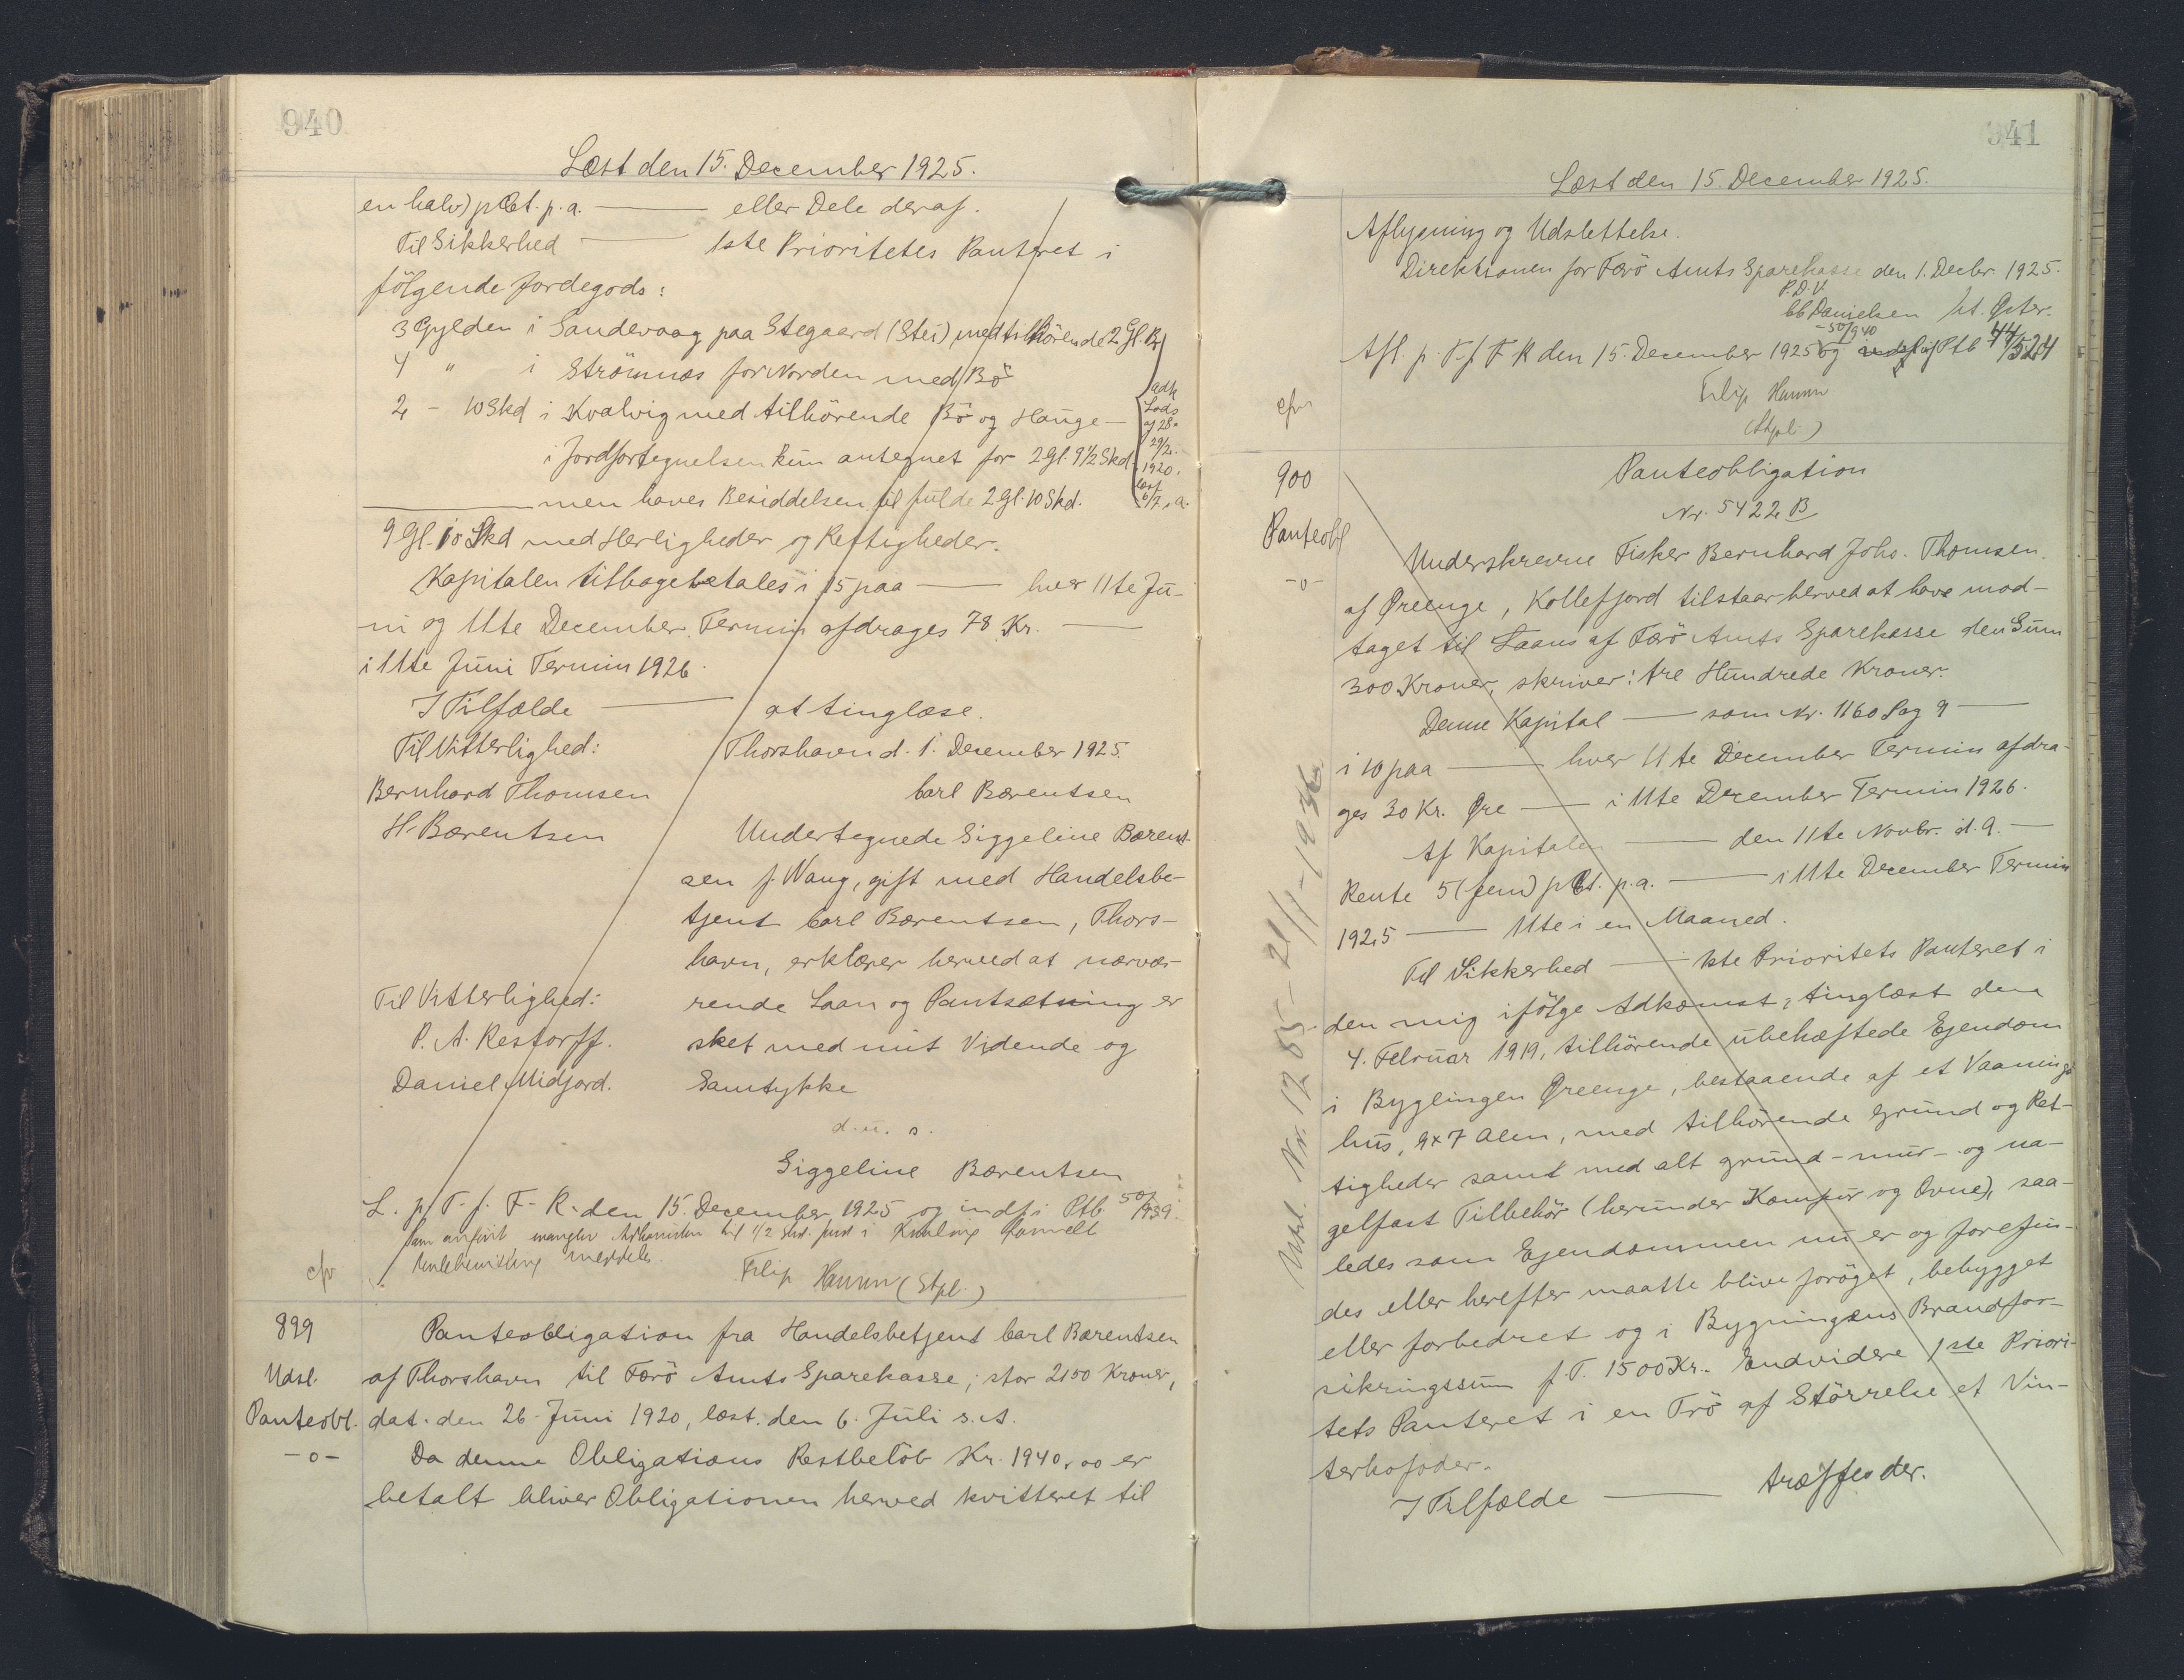 940
Læst den 15. December 1925.
en halv) pCt. p. a. — eller Dele deraf.
Til Sikkerhed — 1ste Prioritetes Panteret i
følgende Jordegods:
3 Gylden i Sandevaag paa Stegaard (Stei) med tilhørende 2 Gl. Bø
4 " i Strømnæs for Norden med Bø
2 - 10 Skd i Kvalvig med tilhørende Bø og Hauge —
i Jordfortegnelsen kun antegnet for 2 Gl. 9 1/2 Skd
men haves Besiddelsen til fulde 2 Gl. 10 Skd.
adk
Lods
af 28.
29/2.
1920.
læst
6/7. s. a.
9 Gl. 10 Skd med Herligheder og Rettigheder.
Kapitalen tilbagebetales i 15 paa — hver 11te Ju-
ni og 11te December Termin afdrages 78 Kr. —
i 11te Juni Termin 1926.
I Tilfælde — at tinglæse.
Til Vitterlighed: Thorshavn d. 1. December 1925.
Bernhard Thomsen Carl Bærentsen
H. Bærentsen Undertegnede Siggeline Bærent-
sen f. Wang, gift med Handelsbe-
tjent Carl Bærentsen, Thors-
havn, erklærer herved at nærvæ-
Til Vitterlighed: rende Laan og Pantsætning er
P. A. Restorff. sket med mit Vidende og
Daniel Midjord. Samtykke
d. u. s.
Siggeline Bærentsen
L. p. T. f. F- R. den 15. December 1925 og indf i Ptb 50/939.
Som anført mangler Adkomsten til 1/2 Skd. Jord i Kvalvig
meddeles.
cfr Filip Hamm (Stpl.)
899 Panteobligation fra Handelsbetjent Carl Bærentsen
Udsl. af Thorshavn til Færø Amts Sparekasse, stor 2150 Kroner,
Panteobl. dat. den 26. Juni 1920, læst. den 6. Juli s. A.
-o- Da denne Obligations Restbeløb Kr. 1940,00 er
betalt bliver Obligationen herved kvitteret til
941
Læst den 15. December 1925.
Aflysning og Udslettelse.
Direktionen for Færø Amts Sparekasse den 1. Decbr. 1925.
P. D. V.
CC Danielsen Jst. Øster.
- 50/940
Afl. p. T. f. F R den 15. December 1925 og udsl af Ptb 44/524
Filip Hamm
cfr (Stpl.)
900 Panteobligation
Nr. 5422 B
Panteobl
-o-
Underskrevne Fisker Bernhard Johs. Thomsen.
af Øreenge, Kollefjord tilstaar herved at have mod-
taget til Laans af Færø Amts Sparekasse den Sum
300 Kroner, skriver: tre Hundrede Kroner.
Denne Kapital — som Nr. 1160 Pag 9 —
i 10 paa — hver 11te December Termin afdra-
ges 30 Kr. Øre — i 11te December Termin 1926.
Af Kapitalen — den 11te Novbr. d. A. —
Rente 5 (fem) pCt. p. a. — i 11te December Termin
1925 — 11te i en Maaned.
Til Sikkerhed — 1ste Prioritets Panteret i
den mig ifølge Adkomst, tinglæst den
4. Februar 1919, tilhørende ubehæftede Ejendom
i Byglingen Øreenge, bestaaende af et Vaanings-
hus, 9x7 Alen, med tilhørende Grund og Ret-
tigheder samt med alt grund- mur- og na-
gelfast Tilbehør (herunder Komfur og Ovne), saa-
ledes som Ejendommen nu er og forefin-
des eller herefter maatte blive forøget, bebygget
eller forbedret og i Bygningens Brandfor-
sikringssum f. T. 1500 Kr. Endvidere 1ste Priori-
tets Panteret i en Trø af Størrelse et Vin-
terkofoder.
I Tilfælde — træffes der.
Udsl. Nr. 1285 - 21/11-1936